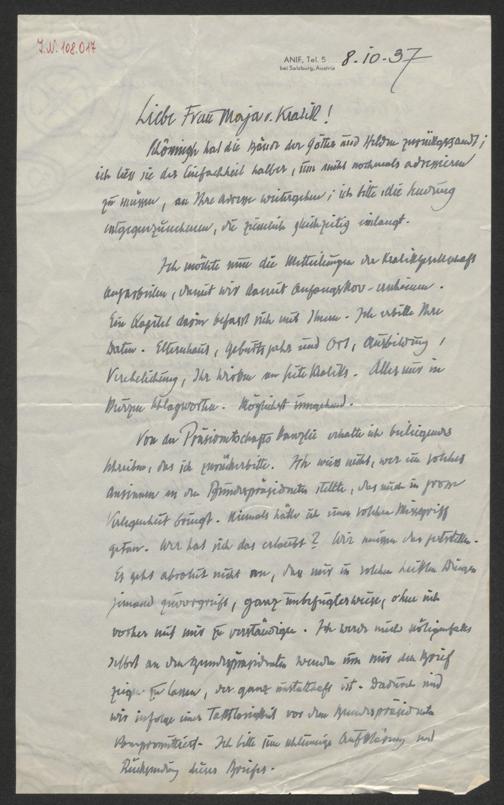 J.N. 108.017
ANIF, Tel. 5
bei Salzburg, Austria
8.10.37
Liebe Frau Maja v. Kralik!
Schöningh hat die Bände der Götter und Helden zurückgesandt;
ich liess sie der Einfachheit halber, um nicht nochmals adressieren
zu müssen, an Ihre Adresse weitergehen; ich bitte die Sendung
entgegenzunehmen, die ziemlich gleichzeitig einlangt.
Ich möchte nun die Mitteilungen der Kralikgesellschaft
ausarbeiten, damit wir damit Anfangs Nov. erscheinen.
Ein Kapitel darin befasst sich mit Ihnen. Ich erbitte Ihre
Daten. Elternhaus, Geburtsjahr und Ort, Ausbildung,
Verehelichung, Ihr Wirken an Seite Kraliks. Alles nur in
kurzen Schlagworten. Möglichst umgehend.
Von der Präsidentschafts Kanzlei erhalte ich beiliegendes
Schreiben, das ich zurückerbitte. Ich weiss nicht, wer ein solches
Ansinnen an den Bundespräsidenten stellte, das mich in grosse
Verlegenheit bringt. Niemals hätte ich einen solchen Missgriff
getan. Wer hat sich das erlaubt? Wir müssen das feststellen.
Es geht absolut nicht an, dass mir in solchen heiklen Dingen
jemand zuvorgreift, ganz unbefugterweise, ohne sich
vorher mit mir zu verständigen. Ich werde mich nötigenfalls
selbst an den Bundespräsidenten wenden um mir den Brief
zeigen zu lassen, der ganz unstatthaft ist. Dadurch sind
wir infolge einer Taktlosigkeit vor dem Bundespräsidenten
kompromittiert. Ich bitte um schleunige Aufklärung und
Rücksendung dieses Briefes.